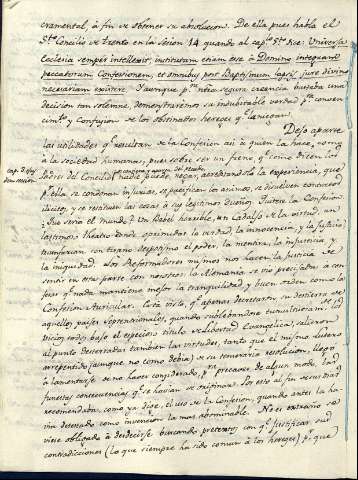 cramental, à fin de obtener su absolucion. De ella pues habla el
Sto. Concilio de Trento en la Sesion 14 quando al capº 5º dice: Universa
Ecclesia semper intellexit, institutam etiam esse à Domino integram
peccatorum Confessionem, et omnibus post Baptismum lapsis jure divino
necessariam existere. Y aunque pª ntra segura creencia bastaba una
decision tan solemne, demostraremos su indubitable verdad pª conven
cimto y confusion de los obstinados hereges q la niegan.
Dejo aparte
las utilidades q resultan de la Confesion asi à quien la hace, como
à la Sociedad humana, pues sobre ser un freno, q como dicen los
Padres del Concilio nadie puede negar, acreditandolo la experiencia, que
pr ella se condonan injurias, se pacifican los animos, se disuelven concier
ilicitos, y se restituien las cosas à sus legitimos dueños. Quiten la Confesion
Que seria el mundo? Un Babel horrible, un Cadalso de la virtud, un
lastimoso theatro donde oprimidas la verdad, la innocencia, y la Justicia
triunfarian con tirano despotismo el poder, la mentira, la injusticia, y
la iniquidad. Los Reformadores mismos nos hacen la justicia de
sentir en esta parte con nosotros: la Alemania se vio precisada à con
fesar q nada mantiene mejor la tranquilidad y buen orden como la
Confesion Auricular. Esta vista, q apenas decretaron su destierro de
aquellos paises Septentrionales, quando sublebandose tumultuariamte
vicios todos bajo el especioso titulo de libertad Evangelica, salieron
al punto desterradas tambien las virtudes, tanto que el mismo Lutero
arrepentido (aunque no como debia) de su temeraria resolucion, llegó
à lamentarse de no haver considerado, pª precaver de algun modo, las
funestas consecuencias q se havian de originar. Por esto al fin de sus dias
recomendaba, como ya dige, el uso de la Confesion, quando antes la ha
via detestado como invencion la mas abominable. No es extraño se
viese obligado à desdecirse buscando pretextos con q justificar sus
contradicciones (lo que siempre ha sido comun à los hereges) pr que